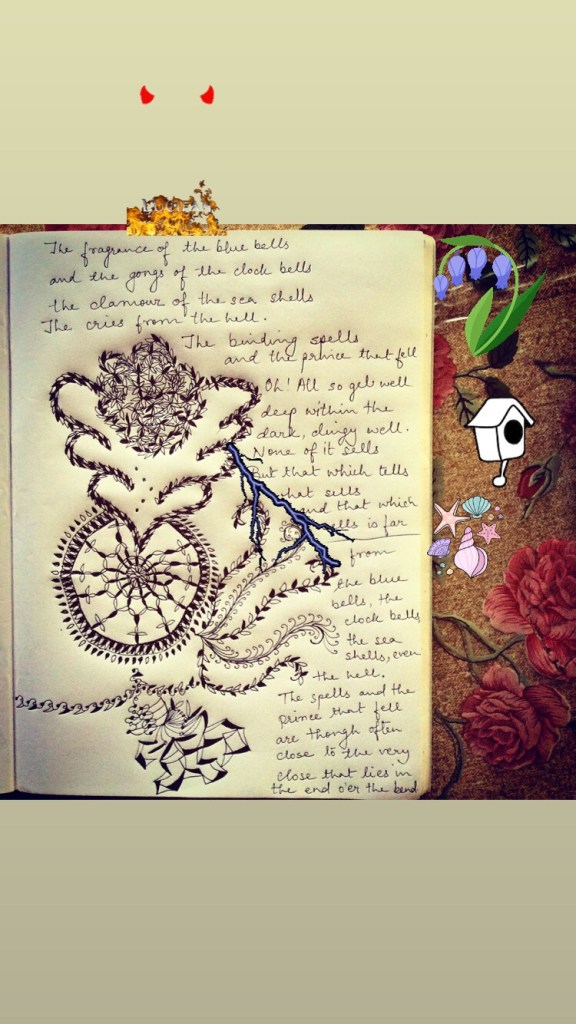 The fragrance of the blue bells
and the gongs of the clock bells
the clamour of the sea shells
The cries from the hell.
The binding spells
and the prince that fell
Oh! All so gel well
deep within the
dark, dingy well.
None of it sells
But that which tells
what sells
and that which
is far
from
the blue
bells, the
clock bells
the sea
shells, even
the hell.
The spells and the
prince that fell
are though often
close to the very
close that lies in
the end o'er the bend